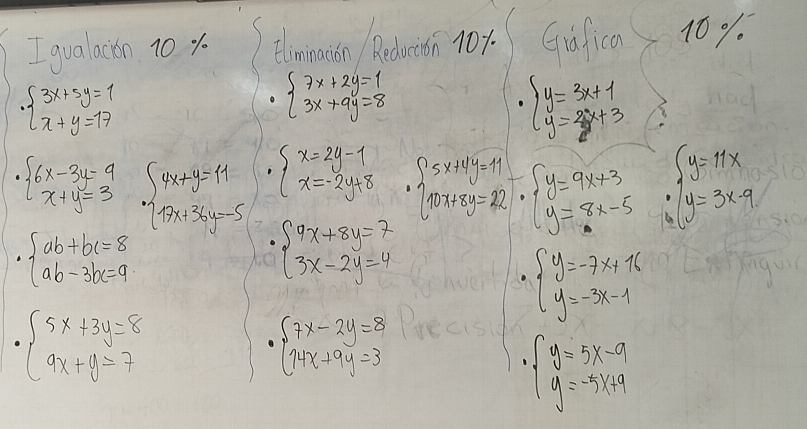 Igualación 10 %
3x+5y=1
x+y=17
6x-3y=9
x+y=3
4x+y=11
17x+36y=-5
ab+bc=8
ab-3bc=9
5x+3y=8
9x+y=7
Eliminación/Reducción 10%
7x+2y=1
3x+9y=8
x=2y-1
x=-2y+8
5x+4y=11
10x+8y=22
9x+8y=7
3x-2y=4
7x-2y=8
14x+9y=3
Gráfica 10%
y=3x+1
y=2x+3
y=9x+3
y=8x-5
y=11x
y=3x-9
y=-7x+16
y=-3x-1
y=5x-9
y=-5x+9